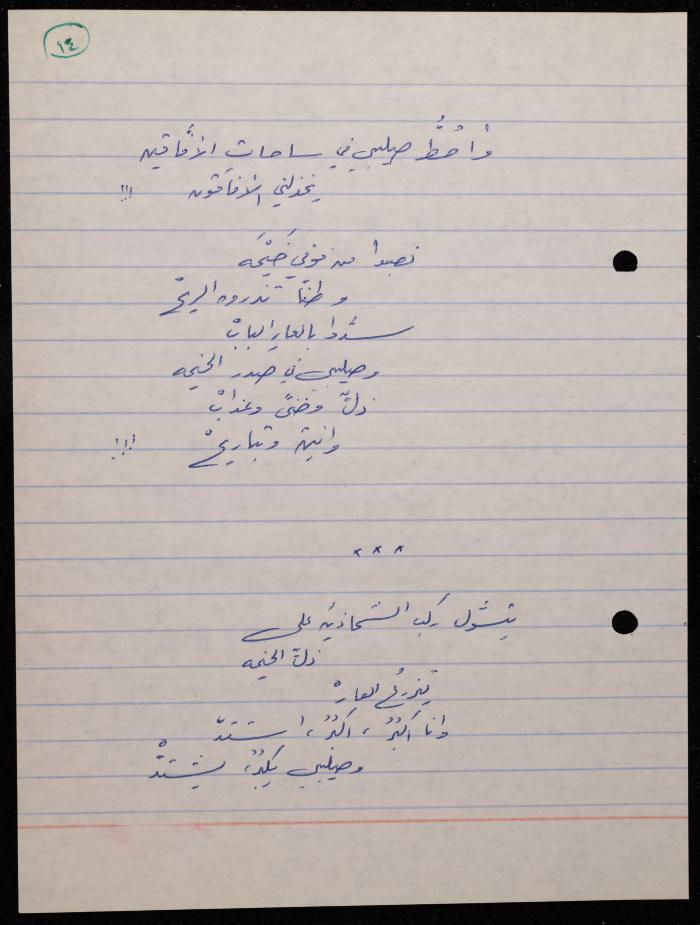 ١٤
وأحُطُّ صليبي في ساحاتِ الأفّاقين
يخذلني الأفاقون !!!
نصبوا من فوقي خَيْمَه
وطناً تذروه الريحْ
سدّوا بالعارِ البابْ
وصليبي في صدر الخيمه
ذلٌّ وضنىً وعذابْ
وأنينٌ وتباريحْ !!!
× × ×
يتسوّل ركب الشحاذين على
ذلّ الخيمه
يتذرعُ العارْ
وأنا أكبرُ، أكبرُ، أشتدّ
وصليبي يكبرُ، يشتدّْ